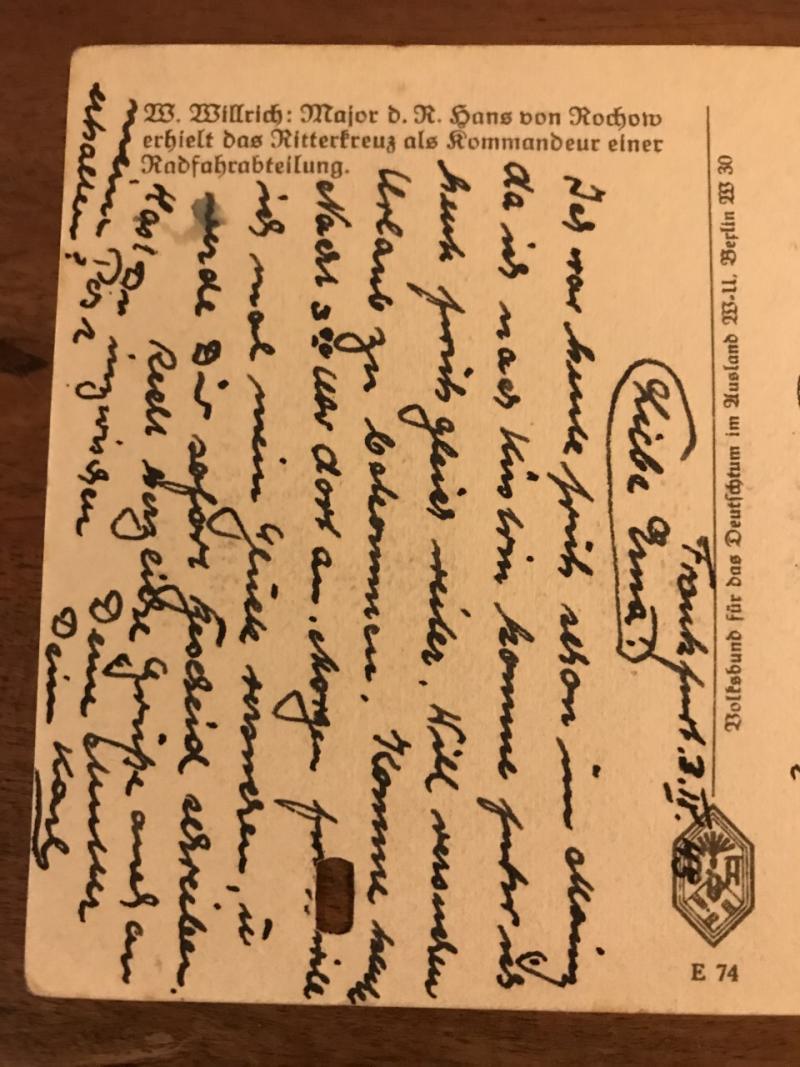 W. Willrich: Major d. R. Hans von Rochow
erhielt das Ritterkreuz als Kommandeur einer
Radfahrabteilung.
Volksbund für das Deutschtum im Ausland W-U. Berlin W 30
E 74
Frankfurt. 3. II. 43
Liebe Erna!
Ich war heute früh schon in Mainz
da ich nach Küstrin komme fuhr ich
heute früh gleich weiter. Will versuchen
Urlaub zu bekommen. Komme heute
Nacht 3⁰⁰ Uhr dort an. Morgen früh will
ich mal mein Glück versuchen, u
werde Dir sofort Bescheid schreiben.
Hast Du inzwischen
meine
erhalten?
Recht herzliche Grüße auch an
Deine Mutter
Dein Karl